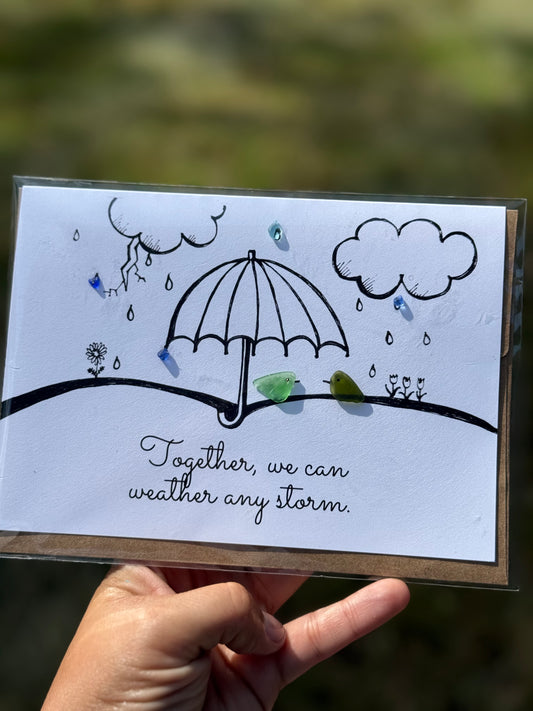 Together, we can
weather any storm.